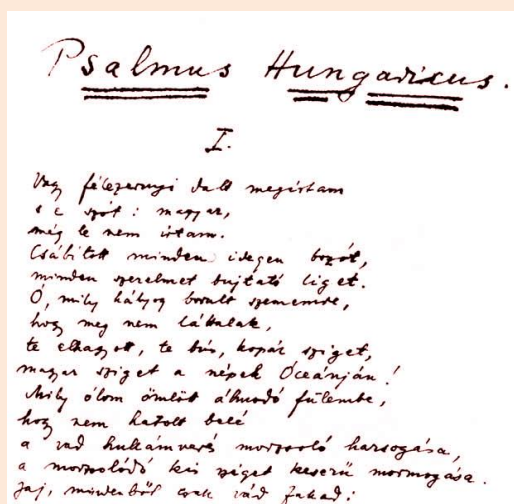 Psalmus Hungaricus.
I.
Vagy félezernyi dalt megírtam
s e szót: magyar,
még le nem írtam.
Csábított minden idegen bozót,
minden szerelmet bujtató liget.
Ó, mily hályog borult szememre,
hogy meg nem láttalak,
te elhagyott, te bús, kopár sziget,
magyar sziget a népek Óceánján!
Mily ólom ömlött álmodó fülembe,
hogy nem hatolt belé
a vad hullámverés morzsoló harsogása,
a morzsolódó kis sziget keserű mormogása.
Jaj, mindenből csak vád fakad: